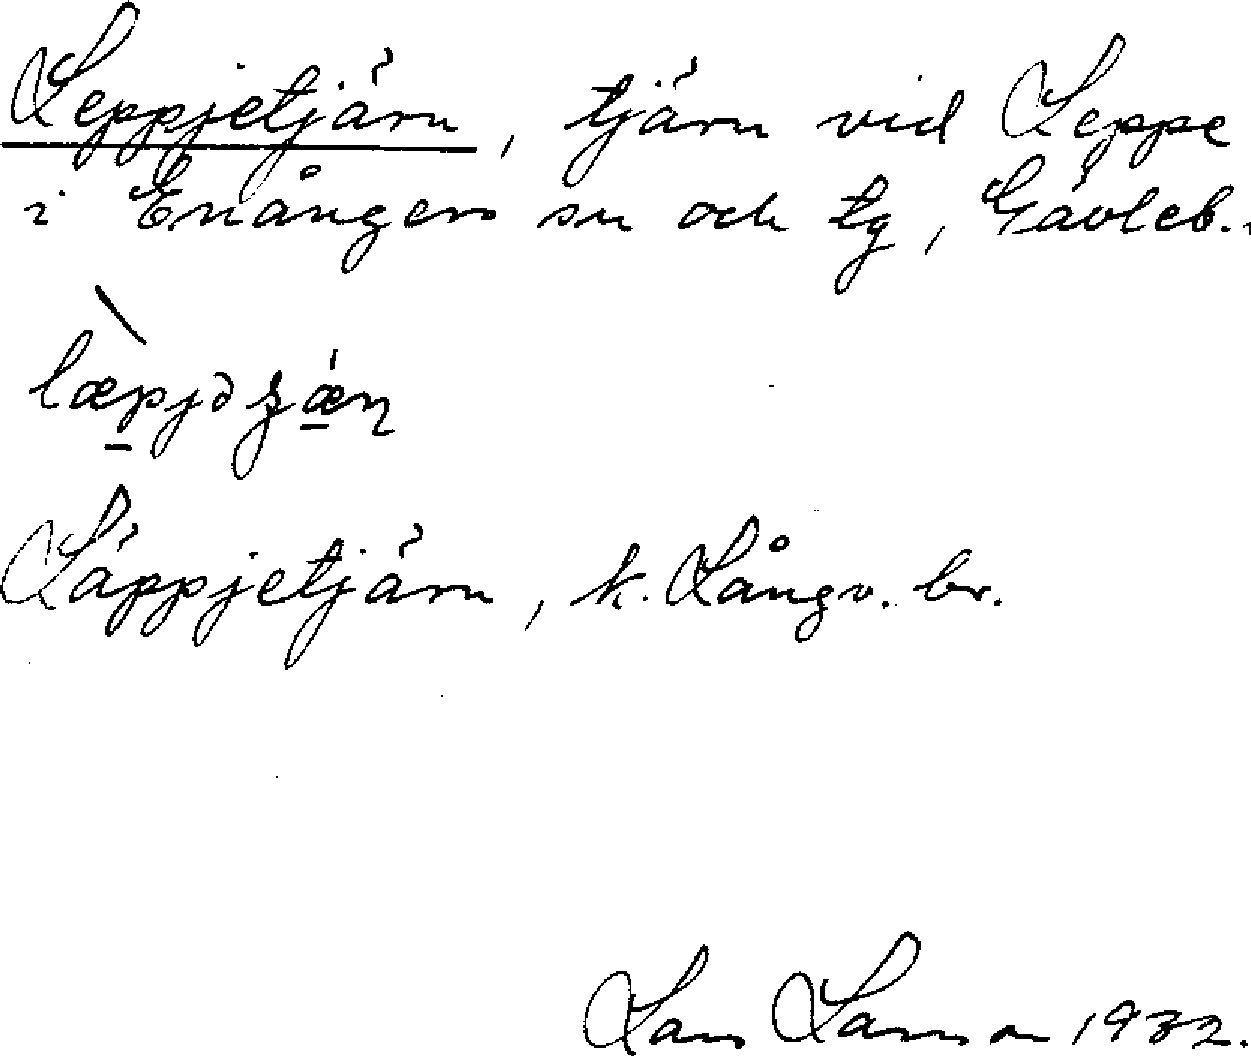 Leppjetjärn, tjärn vid Leppe
i Enångers sn och tg, Gävleb.,
Läppjetjärn, k. Långv. br.
Lars Larsson 1932.